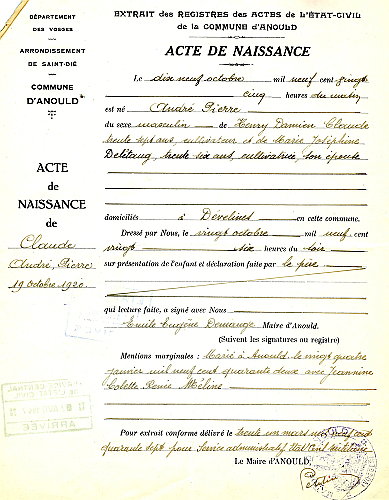 DÉPARTEMENT
DES VOSGES
ARRONDISSEMENT
DE SAINT-DIÉ
COMMUNE
D'ANOULD
ACTE
de
NAISSANCE
de
Claude
André, Pierre
19 octobre 1920.
EXTRAIT DES REGISTRES DES ACTES DE L'ÉTAT-CIVIL
DE LA COMMUNE D'ANOULD
ACTE DE NAISSANCE
Le dix neuf octobre mil neuf cent vingt
cinq heures du matin
est né André Pierre
du sexe masculin de Henry Damien Claude
trente sept ans, cultivateur et de Marie Joséphine
trente six ans, cultivatrice, son épouse
domiciliés à Devélines en cette commune.
Dressé par Nous, le vingt octobre mil neuf cent
vingt six heures du soir
sur présentation de l'enfant et déclaration faite par le père
qui lecture faite, a signé avec Nous
Emile Eugène Demange Maire d'Anould.
(Suivent les signatures au registre)
Mentions marginales : Marié à Anould le vingt quatre
janvier mil neuf cent quarante deux avec Jeannine
Colette Renée Méline
Pour extrait conforme délivré le trente un mars mil neuf cent
quarante sept pour Service administratif
Le Maire d'ANOULD,
ARRIVÉE